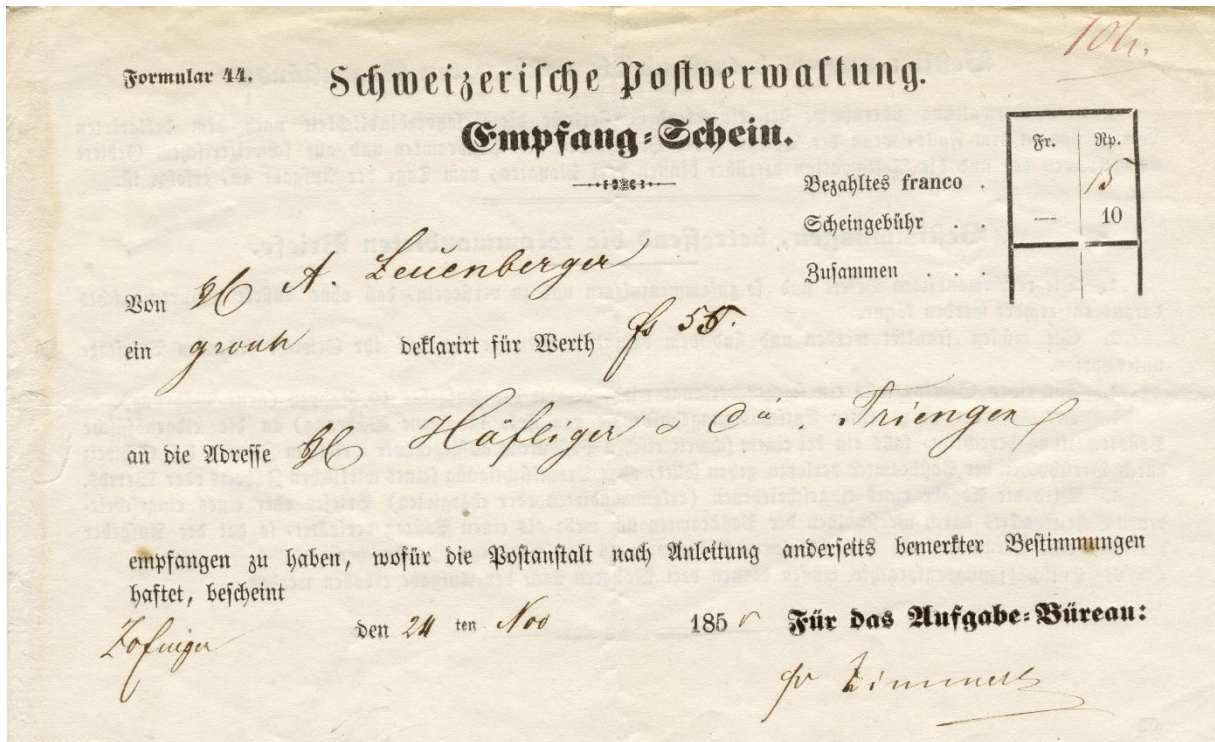 Formular 44.
Schweizerische Postverwaltung.
Empfang-Schein.
Fr. Rp.
Bezahltes franco . 15
Scheingebühr . — 10
Zusammen . . .
Von H A. Leuenberger
ein deklarirt für Werth fs 55.
an die Adresse H Häfliger & Cie. Triengen
empfangen zu haben, wofür die Postanstalt nach Anleitung anderseits bemerkter Bestimmungen
haftet, bescheint
Zofingen den 24 ten Nov 185
Für das Aufgabe-Büreau: